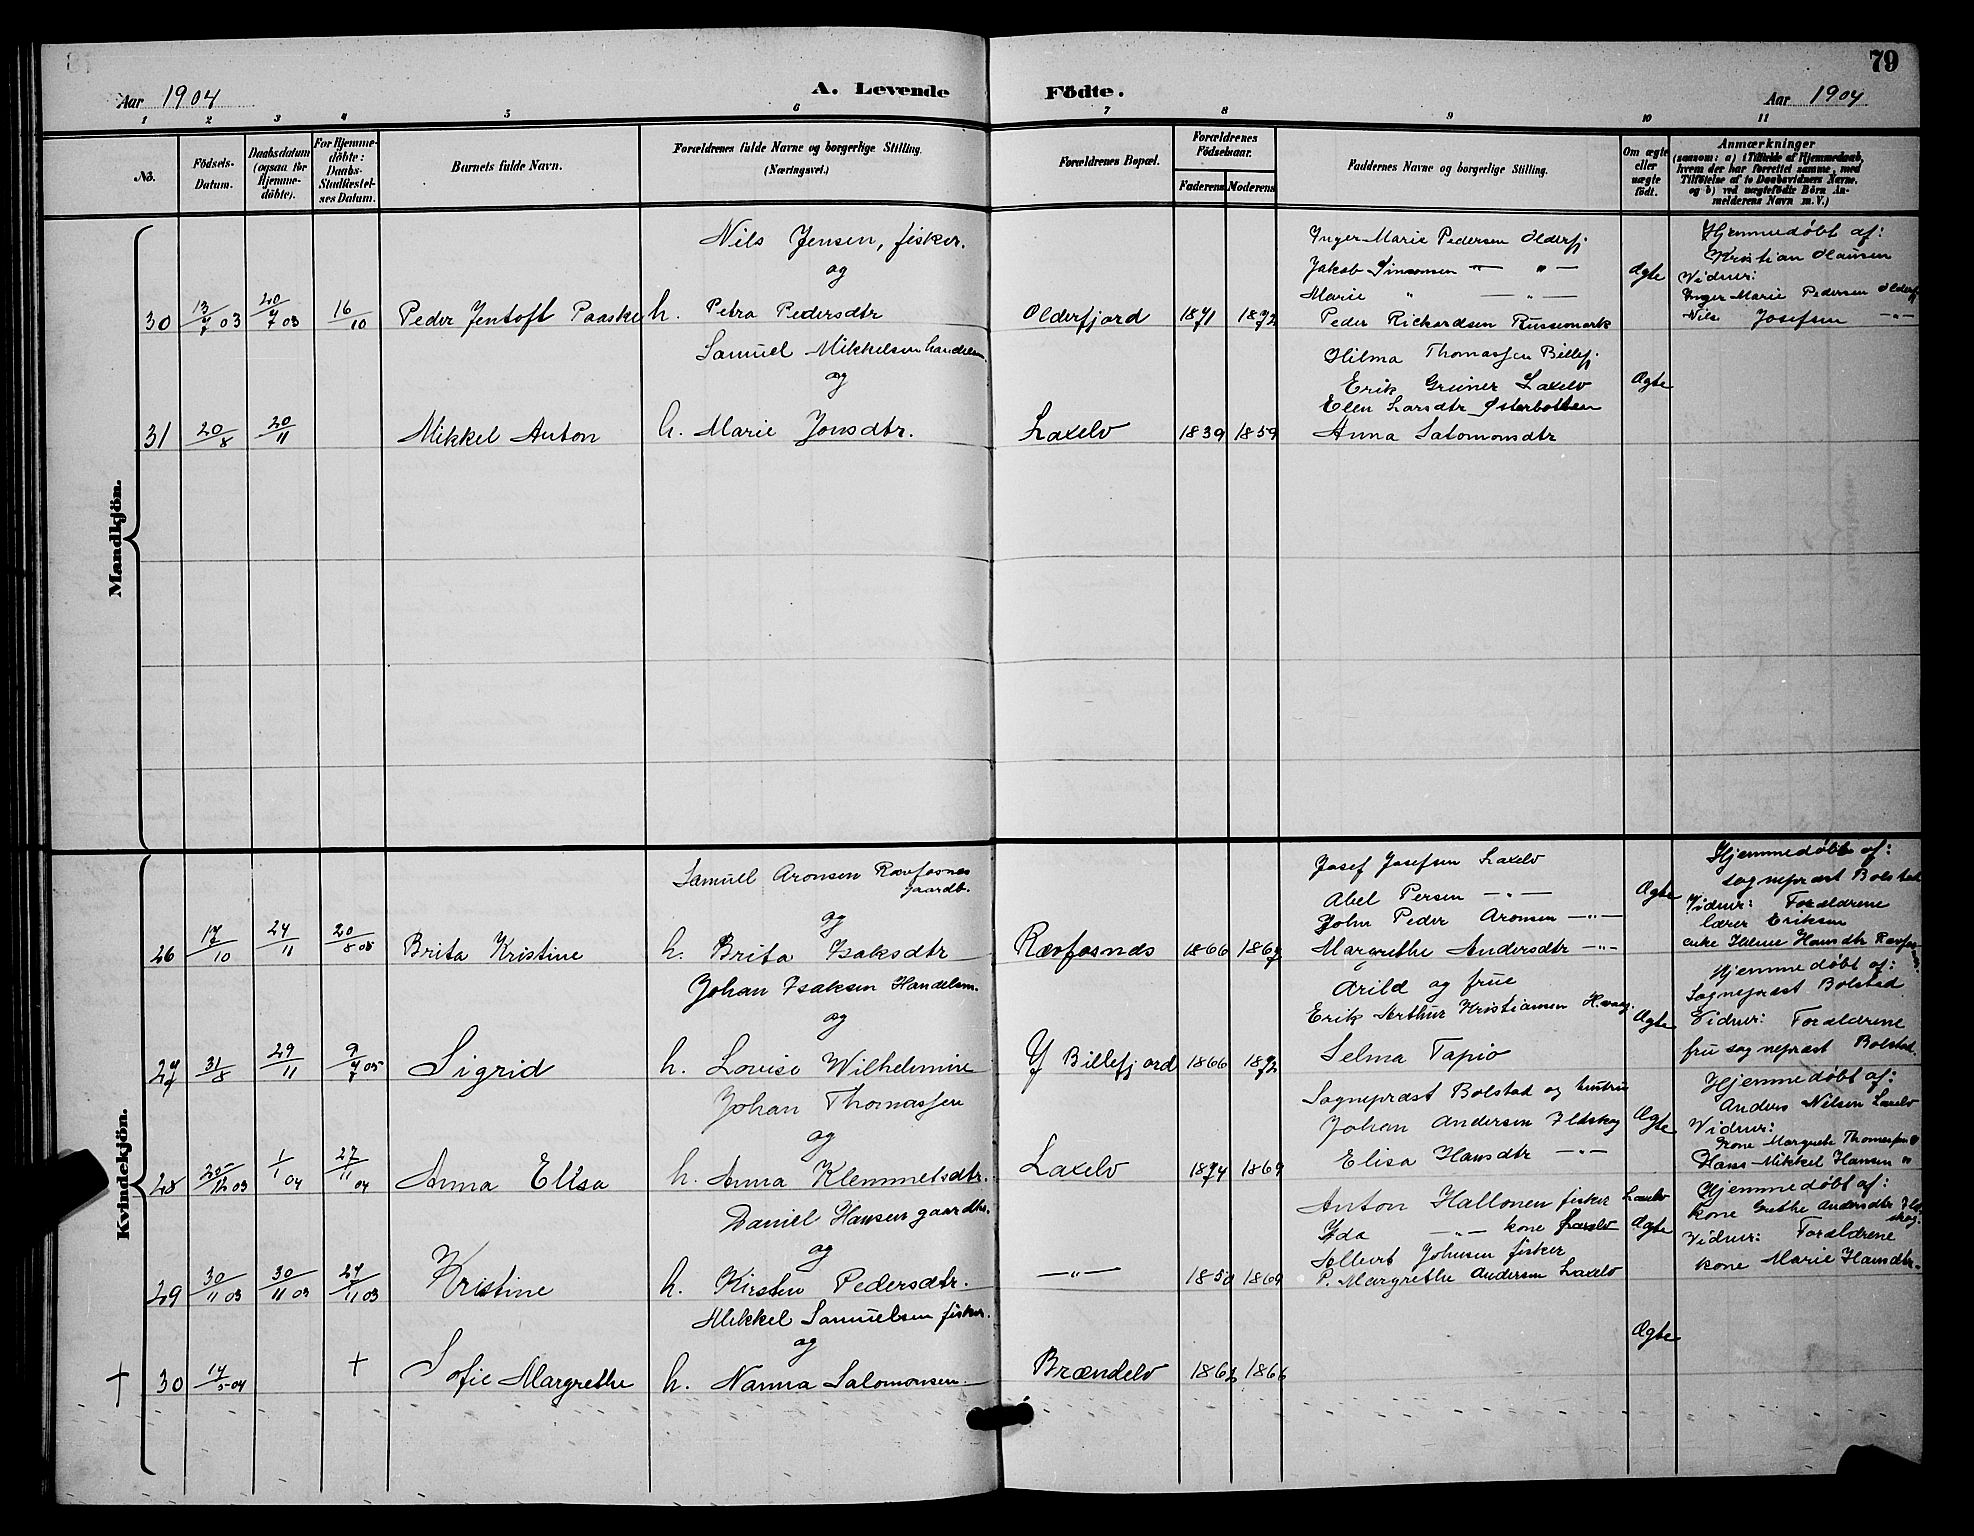 79
Aar 1904
A. Levende
Födte.
Aar 1904
1 2 3 4 5 6 7 8 9 10 11
No.
Födsels-Datum.
Daabsdatum (ogsaa for Hjemme-döbte).
For Hjemme-döbte: Daabs-Stadfæstel-ses Datum.
Barnets fulde Navn.
Forældrenes fulde Navne og borgerlige Stilling.
(Næringsvei.)
Forældrenes Bopæl.
Forældrenes Födselsaar.
Faderens
Moderens
Faddernes Navne og borgerlige Stilling.
Om ægte eller uægte födt.
Anmærkninger
(saasom: a) i Tilfælde af Hjemmedaab, hvem der har forrettet samme, med Tilföielse af to Daabsvidners Navne, og b) ved uægtefödte Börn An-melderens Navn m. V.)
Mandkjön.
Nils Jensen, fisker.
og
30 13/7 03 20/7 03 16/10 Peder Jentoft Paaske h. Petra Pedersdtr Olderfjord 1871 1872
Inger Marie Pedersen Olderfj.
Jakob Simonsen — " —
Marie " — " —
Peder Richardsen Russemark
Ægte
Hjemmedøbt af:
Kristian Hansen
Vidner:
Inger Marie Pedersen Olderfj
Nils Josefsen — " —
Samuel Mikkelsen handelsm.
og
31 20/8 20/11 Mikkel Anton h. Marie Jonsdtr. Laxelv 1839 1859
Hilma Thomassen Billefj.
Erik Greiner Laxelv
Elen Larsdtr Østerbotten
Anna Salomonsdtr
Ægte
Kvindekjön.
Samuel Aronsen Rævfosnes
gaardb.
og
26 17/10 24/11 20/8 05 Brita Kristine h. Brita Isaksdtr Rævfosnes 1866 1867
Josef Josefsen Laxelv
Abel Persen — " —
John Peder Aronsen — " —
Margrethe Andersdtr — " —
Ægte
Hjemmedøbt af:
sognepræst Bolstad
Vidner: Forældrene
lærer Eriksen
enke Helene Hansdtr Rævfos
Johan Isaksen Handelsm.
og
27 31/8 29/11 9/7 05 Sigrid h. Lovise Wilhelmine Y Billefjord 1866 1872
Arild og frue
Erik Arthur Kristiansen
Selma Tapio
Ægte
Hjemmedøbt af:
Sognepræst Bolstad
Vidner: Forældrene
fru sognepræst Bolstad.
Johan Thomassen
og
28 25/12 03 1/1 04 27/11 04 Anna Elisa h. Anna Klemmetsdtr. Laxelv 1874 1869
Sognepræst Bolstad og hustru
Johan Andersen Ildskog
Elisa Hansdtr — " —
Ægte
Hjemmedøbt af:
Anders Nilsen Laxelv
Vidner:
Kone Margrete Thomassen "
Hans Mikkel Hansen "
Daniel Hansen gaardbr.
og
29 30/11 03 30/11 03 27/11 03 Kristine h. Kirsten Pedersdtr. — " — 1850 1869
Anton Hallonen fisker Laxelv
Ida — " — kone Laxelv
Albert Johnsen fisker
P. Margrethe Andersen Laxelv
Ægte
Hjemmedøbt af:
kone Grethe Andersdtr Ild-
skog.
Vidner: Forældrene
kone Marie Hansdtr.
Mikkel Samuelsen fisker.
og
† 30 14/5 04 † Sofie Margrethe h. Nanna Salomonsen. Brændelv 1862 1866
Ægte